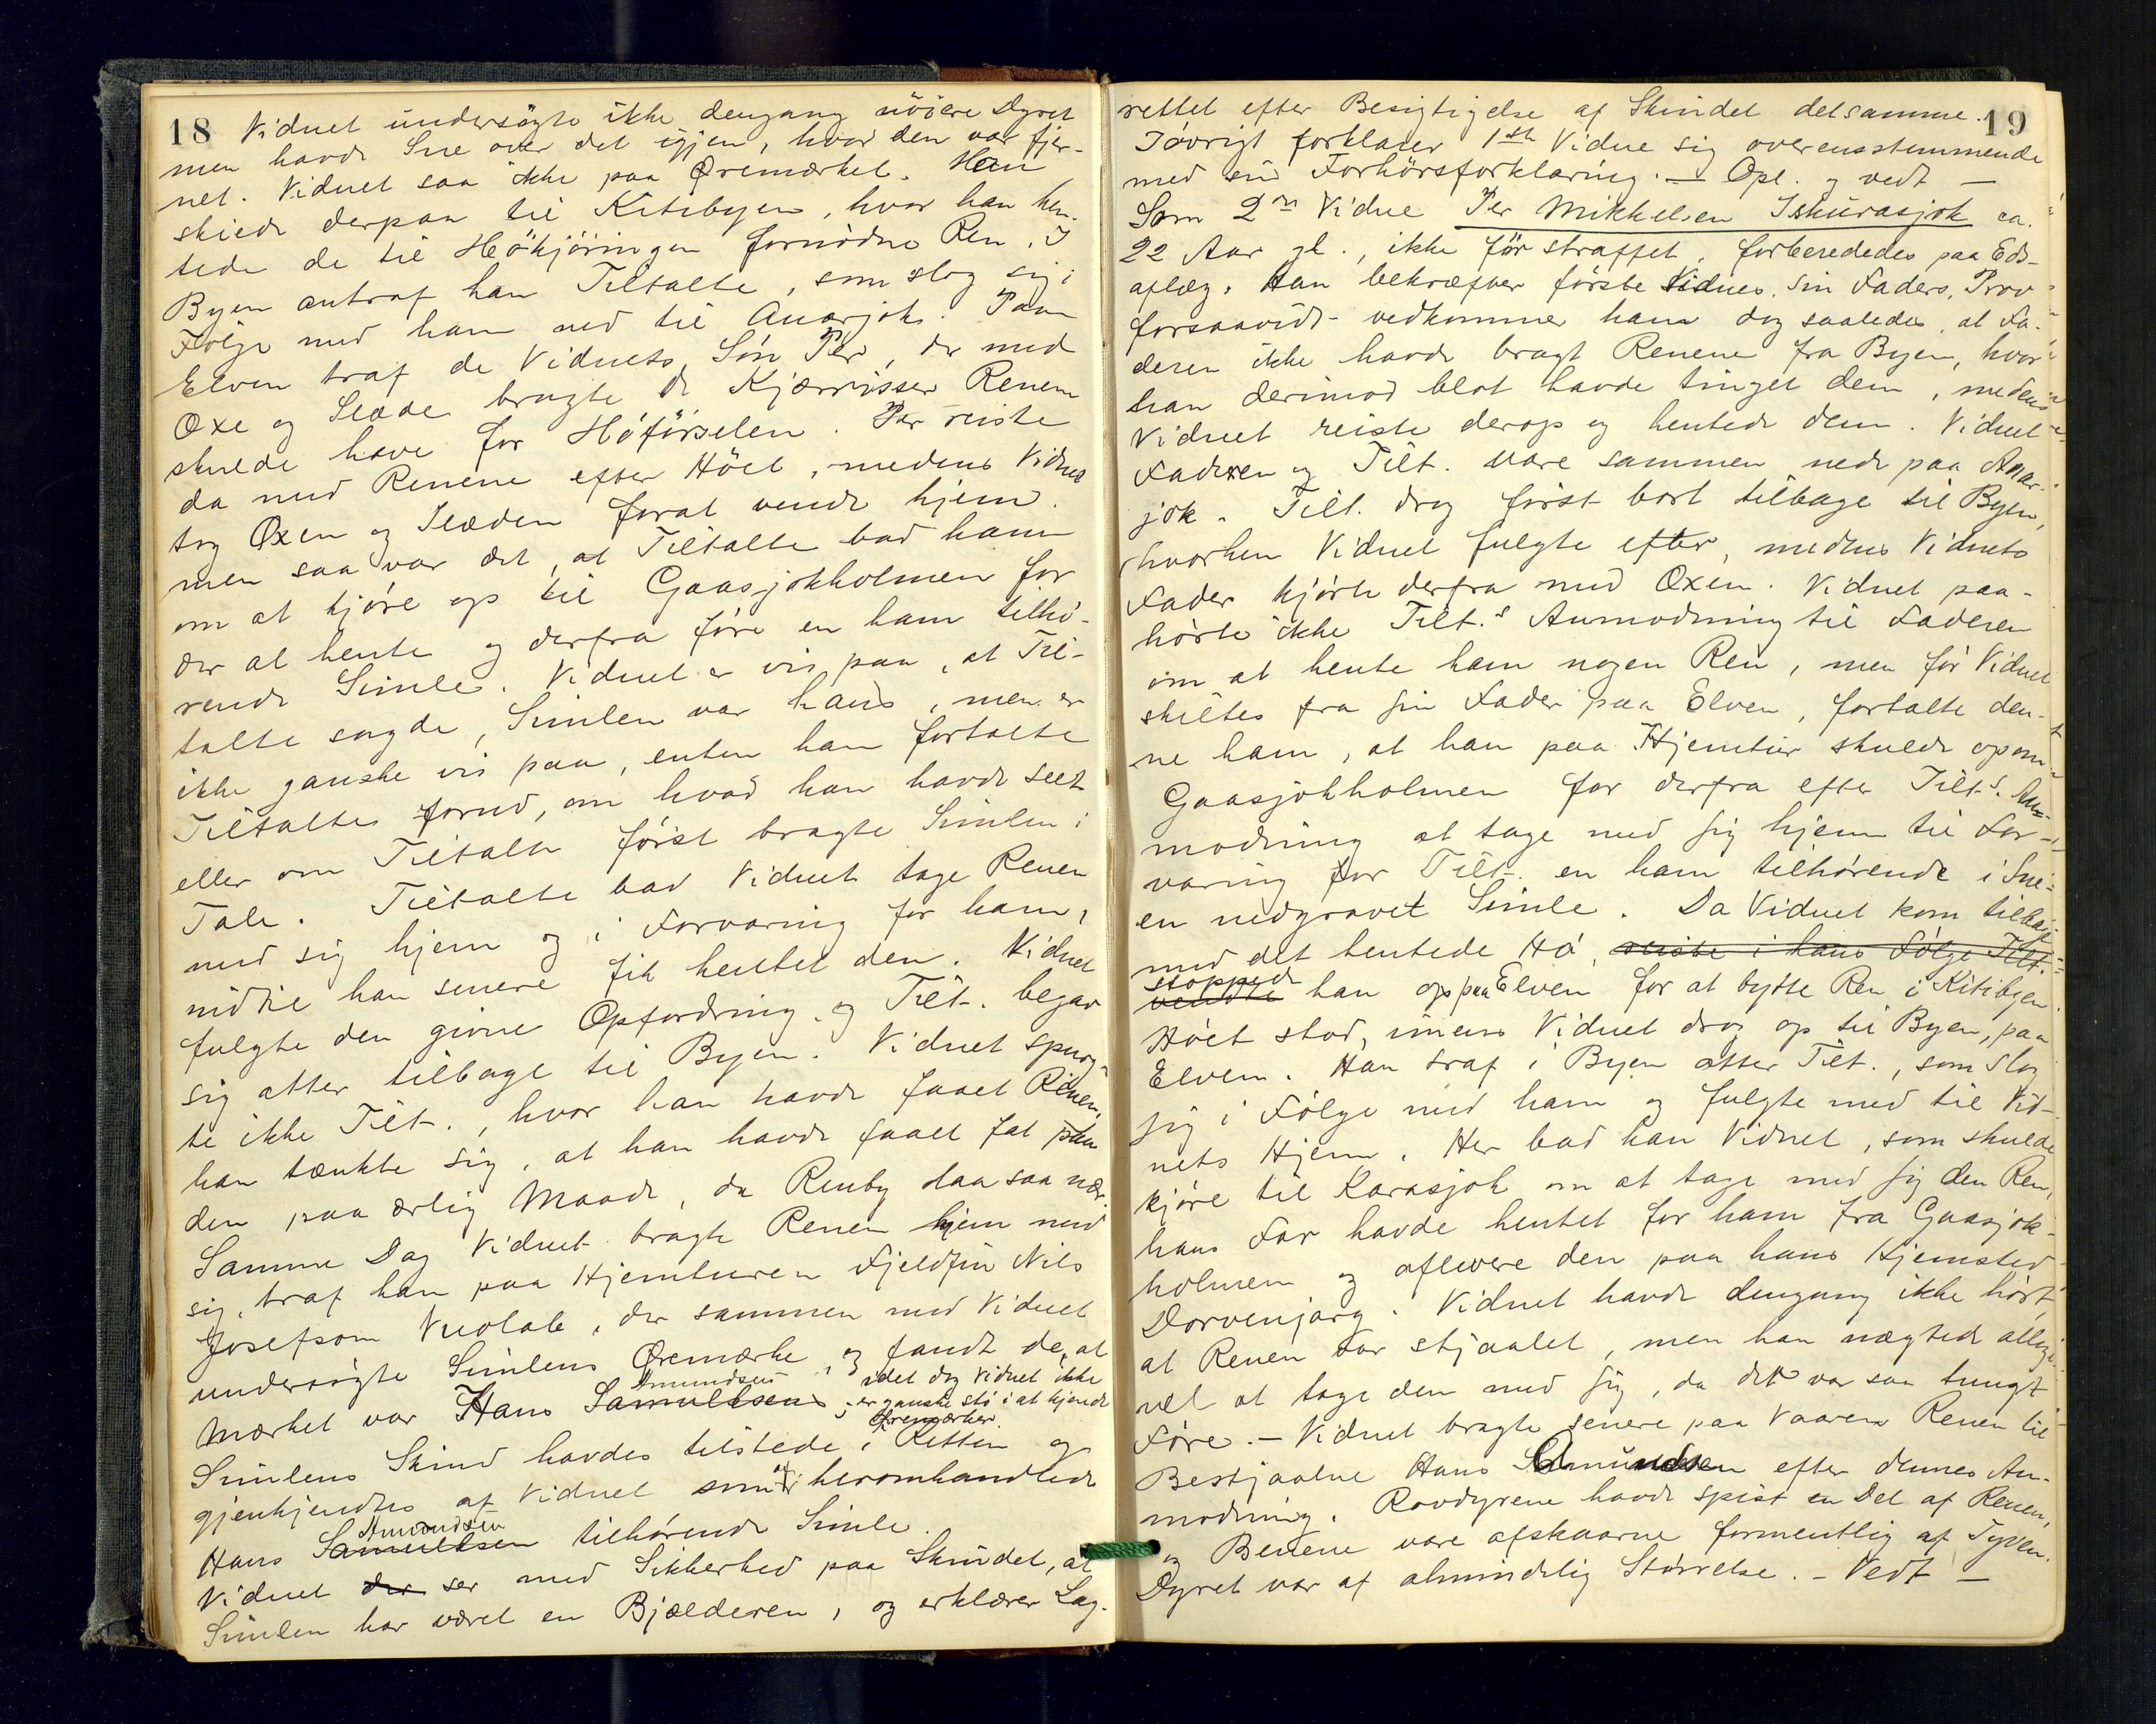 18
Vidnet undersögte ikke dengang nöiere Dyret
men havde Sne over det igjen, hvor den var fjer-
net. Vidnet saa ikke paa Øremærket. Han
skiede derpaa til Kitibyen, hvor han hen-
tede de til Høkjöringen fornödne Ren. I
Byen antraf han Tiltalte, som slog sig i
Fölge med ham ned til Anarjok. Paa
Elven traf de Vidnets Sön Per, der med
Oxe og Slæde bragte de Kjærrisser Renene
skulde have for Höförselen. Per reiste
da med Renene efter Höet, medens Vidnet
tog Oxen og Slæden forat vende hjem.
men saa var det, at Tiltalte bad ham
om at kjöre op til Gaasjokholmen for
der at hente og derfra före en ham tilhö-
rende Simle. Vidnet er vis paa, at Til-
talte sagde, Simlen var hans, men er
ikke ganske vis paa, enten han fortalte
Tiltalte forud, om hvad han havde seet
eller om Tiltalte först bragte Simlen i
Tale. Tiltalte bad Vidnet tage Renen
med sig hjem og i Forvaring for ham,
indtil han senere fik hentet den. Vidnet
fulgte den givne Opfordring, og Tilt. begav
sig atter tilbage til Byen. Vidnet spurg-
te ikke Tilt., hvor han havde faaet Renen,
han tænkte sig, at han havde faaet fat paa
den paa ærlig Maade, da Renby laa saa nær.
Samme Dag Vidnet bragte Renen hjem med
sig, traf han paa Hjemturen Fjeldfin Nils
Josefsom Vuolab, der sammen med Vidnet
undersögte Simlens Øremærke, og fandt de, at
Mærket var Hans Samuelsens Amundsens; idet dog Vidnet ikke
er ganske stö i at kjende
Öremærker.
Simlens Skind havdes tilstede i Retten og
gjenkjendtes af Vidnet som af heromhandlede
Hans Samuelsen Amundsen tilhörende Simle.
Vidnet der ser med Sikkerhed paa Skindet, at
Simlen har været en Bjælderen, og erklærer Lag-
19
rettet efter Besigtigelse af Skindet detsamme.
Iövrigt forklarer 1ste Vidne sig overensstemmende
med sin Forhörsforklaring. — Opl. og vedt —
Som 2det Vidne Per Mikkelsen Iskurasjok ca.
22 Aar gl., ikke för straffet, forberededes paa Eds-
aflæg. Han bekræfter förste Vidnes, sin Faders, Prov
forsaavidt vedkommer ham dog saaledes, at Fa-
deren ikke havde bragt Renene fra Byen, hvor
han derimod blot havde tinget dem, medens
Vidnet reiste derop og hentede dem. Vidnet
Faderen og Tilt. vare sammen nede paa Anar-
jok. Tilt. drog först bort tilbage til Byen,
hvorhen Vidnet fulgte efter, medens Vidnets
Fader kjörte derfra med Oxen. Vidnet paa-
hörte ikke Tilt.s Anmodning til Faderen
om at hente ham nogen Ren, men för Vidnet
skiltes fra sin Fader paa Elven, fortalte den-
ne ham, at han paa Hjemtur skulde opom
Gaasjokholmen for derfra efter Tilts. An-
modning at tage med sig hjem til For-
varing for Tilt. en ham tilhørende i Sne-
en nedgravet Simle. Da Vidnet kom tilbage
med det hentede Hö, reiste i hans Fölge Tilt.
vendte stoppede han op paa Elven for at bytte Ren i Kitibyen.
Höet stod, imens Vidnet drog op til Byen, paa
Elven. Han traf i Byen atter Tilt., som slog
sig i Fölge med ham og fulgte med til Vid-
nets Hjem. Her bad han Vidnet, som skulde
kjöre til Karasjok om at tage med sig den Ren,
hans Far havde hentet for ham fra Gaasjok-
holmen og aflevere den paa hans Hjemsted
Dorvenjarg. Vidnet havde dengang ikke hört,
at Renen var stjaalet, men han nægtede allige-
vel at tage den med sig, da det var saa tungt
Före. — Vidnet bragte senere paa Vaaren Renen til
Bestjaalne Hans Amundsen efter dennes An-
modning. Rovdyrene havde spist en Del af Renen,
og Benene vare afskaarne formentlig af Tyven.
Dyret var af almindelig Störrelse. — Vedt —